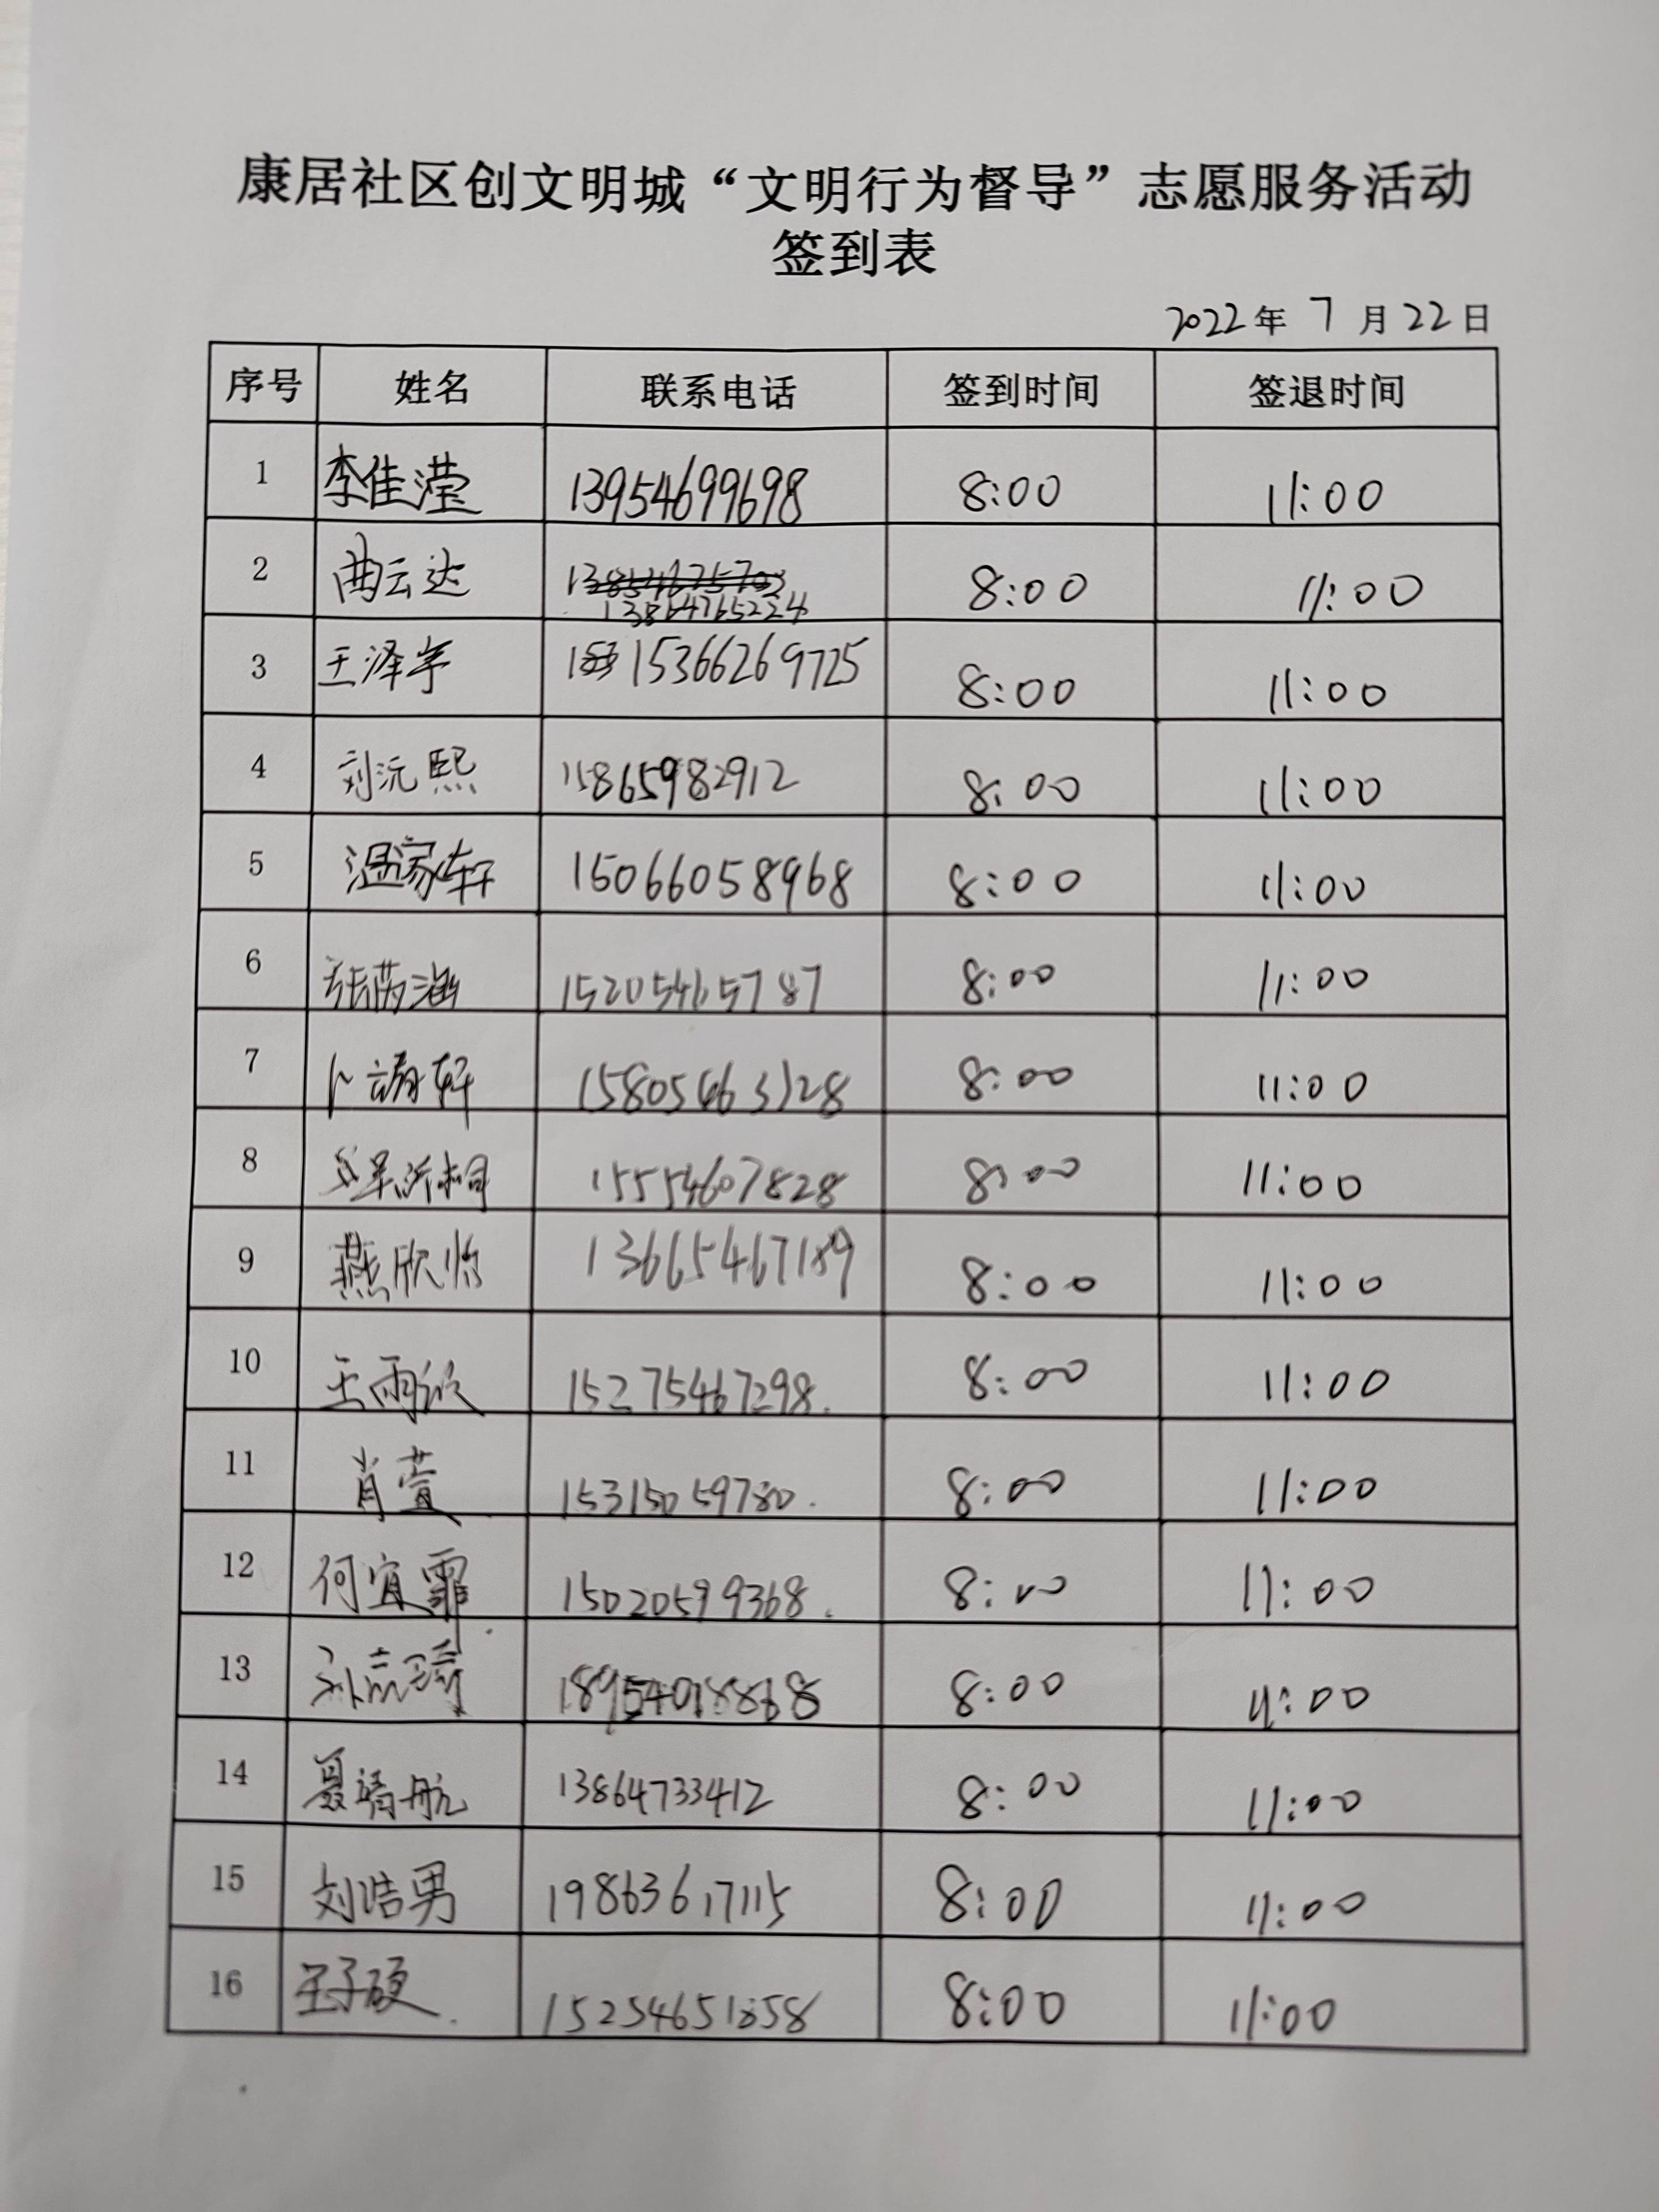 康居社区创文明城“文明行为督导”志愿服务活动
签到表
2022年 7 月 22 日
序号 姓名 联系电话 签到时间 签退时间
1 李佳滢 13954699698 8:00 11:00
2 曲云达 13864765224 8:00 11:00
3 王泽宇 15366269725 8:00 11:00
4 刘沅熙 15865982912 8:00 11:00
5 温家轩 15066058968 8:00 11:00
6 张芮涵 15205465787 8:00 11:00
7 卜靖轩 8:00 11:00
8 15554607828 8:00 11:00
9 燕欣怡 13665467189 8:00 11:00
10 王雨欣 15275467298. 8:00 11:00
11 肖萱 15315059780. 8:00 11:00
12 何宜霏 15020599368. 8:00 11:00
13 孙嘉琦 18954018868 8:00 11:00
14 夏靖航 13864733412 8:00 11:00
15 刘浩男 19863617115 8:00 11:00
16 王子硕. 8:00 11:00